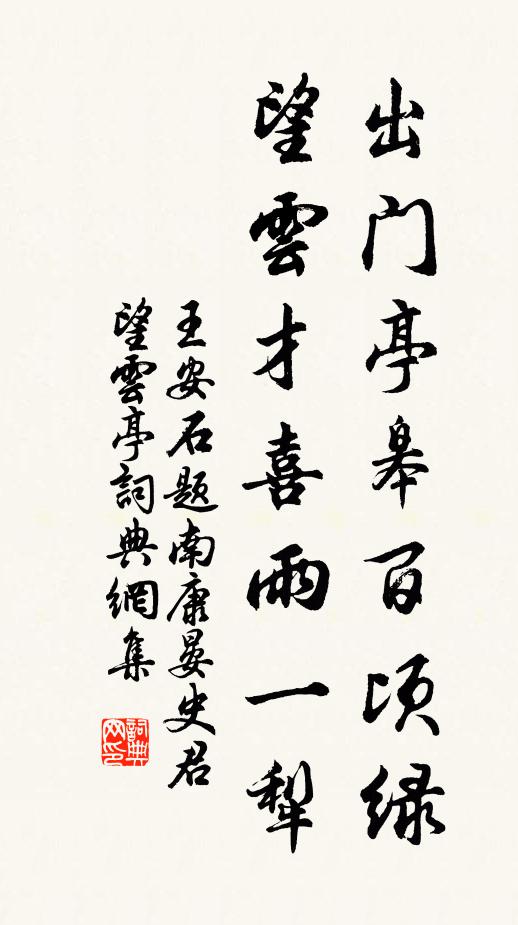 出门亭皋百顷绿
望雲才喜雨一犁
王安石题南康晏史君
望雲亭詞典網集
詞典
网印